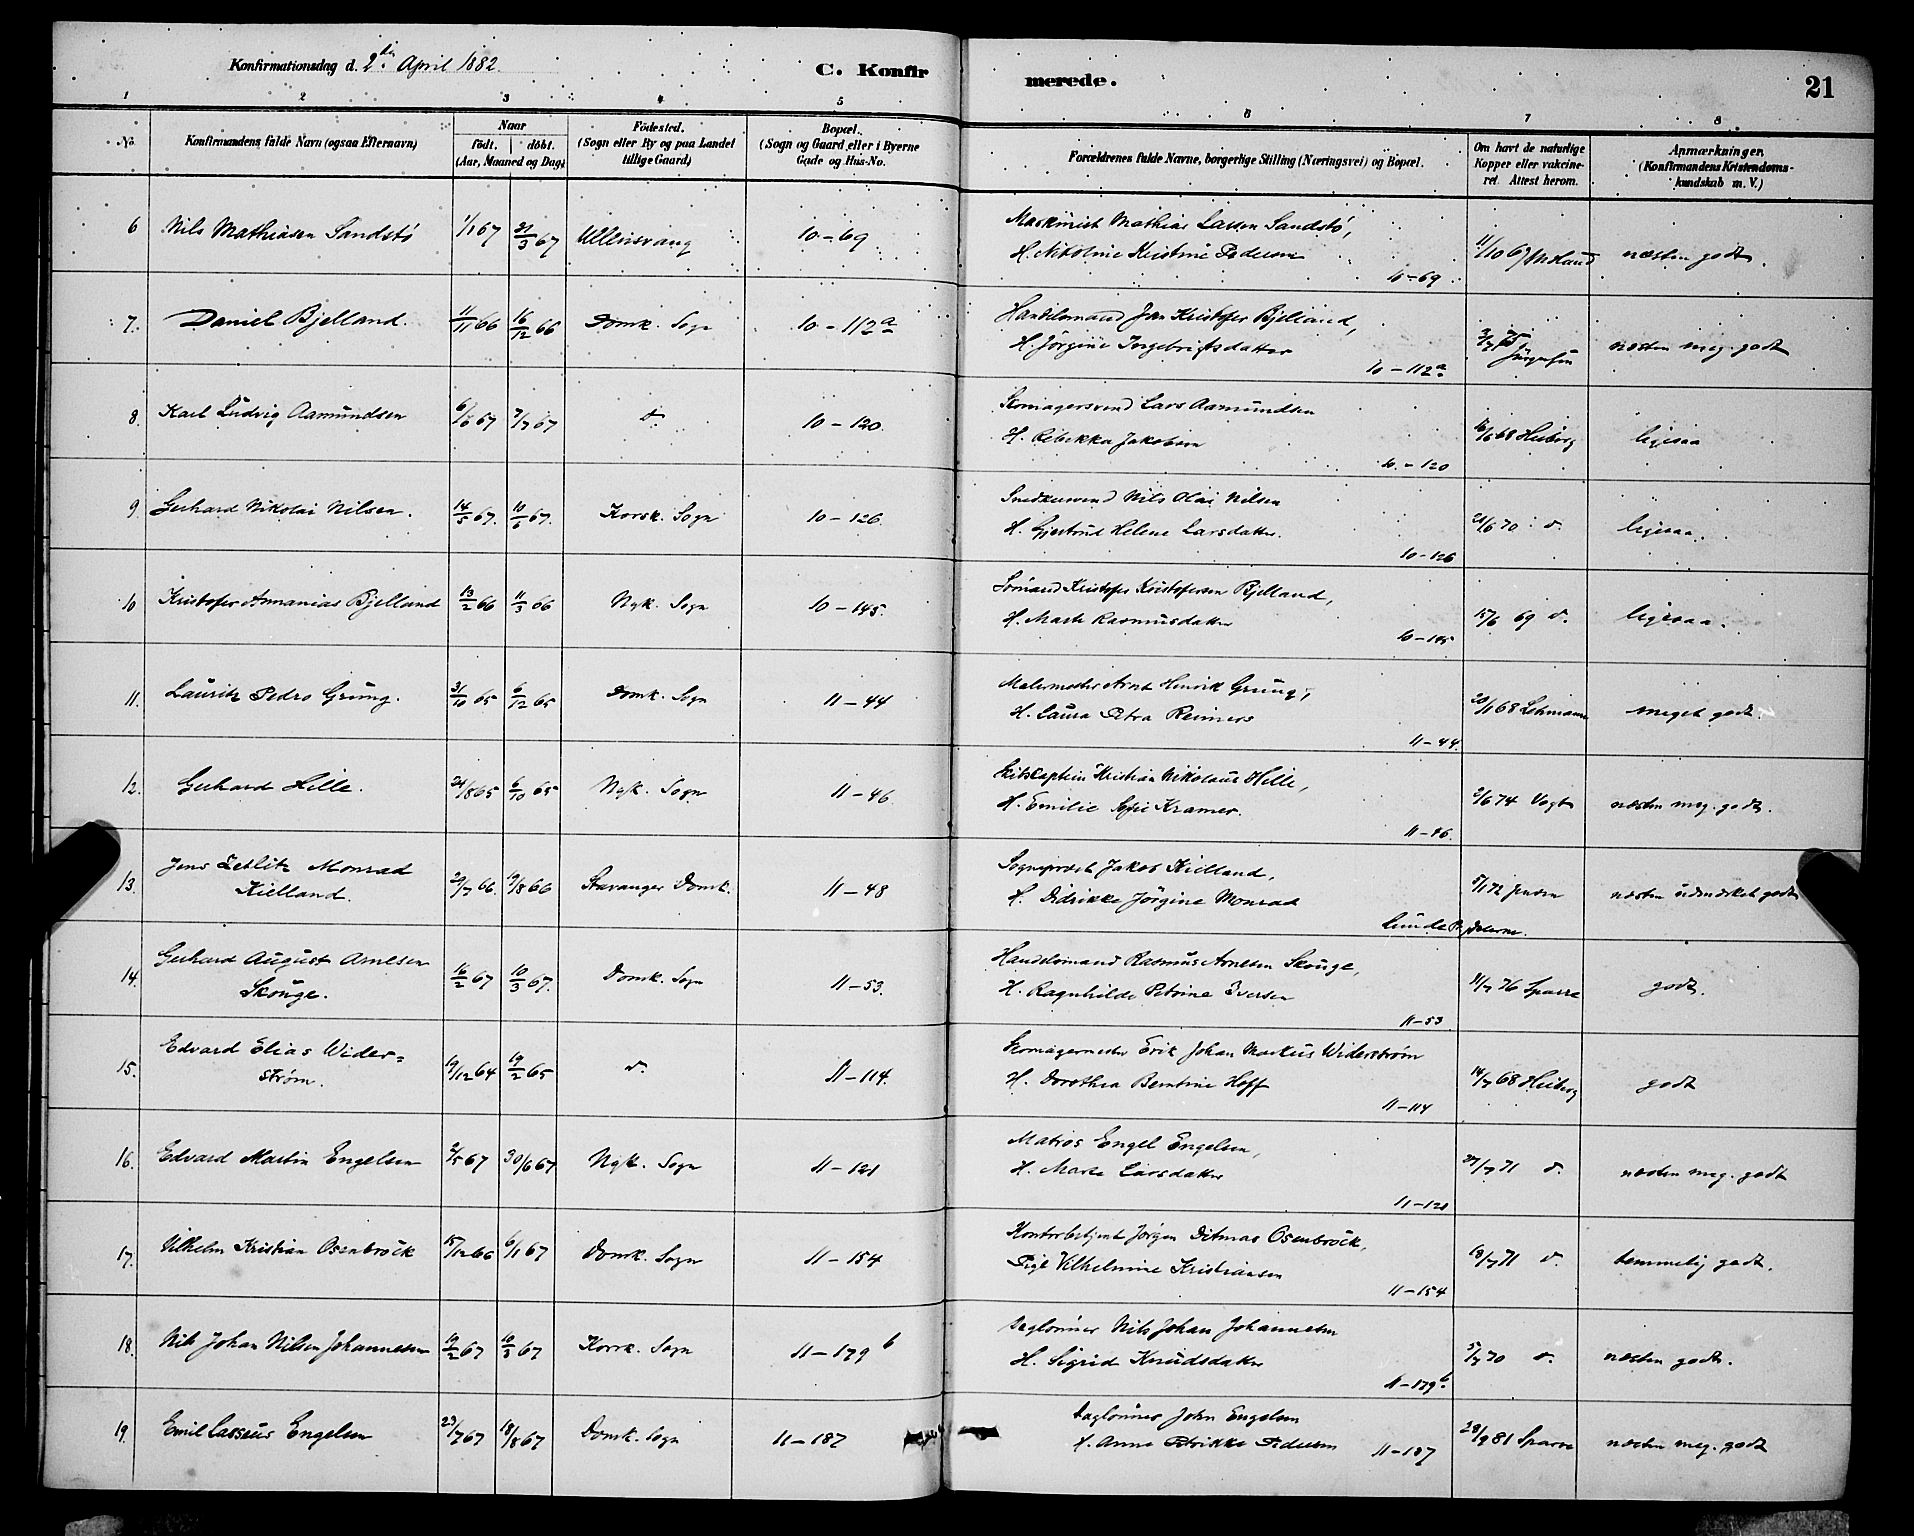 Konfirmationsdag d. 2den April 1882. C. Konfirmerede. 21
1 2 3 4 5 6 7 8
No. Konfirmandens fulde Navn (ogsaa Efternavn) Naar födt. döbt. (Aar, Maaned og Dag) Födested. (Sogn eller By og paa Landet tillige Gaard) Bopæl. (Sogn og Gaard, eller i Byerne Gade og Hus-No. Forældrenes fulde Navne, borgerlige Stilling (Næringsvei) og Bopæl. Om havt de naturlige Kopper eller vakcineret. Attest herom. Anmærkninger. (Konfirmandens Kristendomskundskab m. V.)
6 Nils Mathiasen Sandstö 1/1 67 31/3 67 Ullensvang 10-69 Maskinist Mathias Larsen Sandstö,
H. Nikoline Kristine Pedersen 10-69 11/10 67 næsten godt.
7. Daniel Bjelland. 11/11 66 16/12 66 Domk. Sogn 10-112a Handelsmand Jan Kristofer Bjelland,
H. Jörgine Ingebrigtsdatter 10-112a næsten meg. godt
8. Karl Ludvig Aamundsen 7/7 67 d. 10-120. Skomagersvend Lars Aamundsen
H. Rebekka Jakobsen 10-120 Heiberg ligesaa
9. Gerhard Nikolai Nilsen. 14/5 67. 10/6 67. Korsk. Sogn 10-126. Snedkersvend Nils Olai Nilsen
H. Gjertrud Helene Larsdatter. 10-126 21/6 70 d. ligesaa.
10 Kristofer Ananias Bjelland 13/2 66 11/3 66 Nyk. Sogn 10-145. Sömand Kristofer Kristofersen Bjelland,
H. Marte Rasmusdatter 10-145 15/6 69 d. ligesaa.
11. Lauritz Pedro Grung. 31/10 65 6/12 65 Domk. Sogn 11-44 Malermester Arnt Henrik Grung,
H. Laura Petra Reimers 11-44. 20/11 68 Lehmann meget godt.
12. Gerhard Hille. 24/8 65 6/10 65 Nyk. Sogn 11-46 Skibskaptein Kristian Nikolaus Hille,
H. Emilie Sofie Kramer. 11-46. 2/6 74 Vogt næsten meg. godt.
13. Jens Zetlitz Monrad
Kielland. 29/7 66. 19/8 66 Stavanger Domk. 11-48 Sogneprest Jakob Kielland,
H. Didrikke Jörgine Monrad
Lunde 5/1 72 Jensen næsten udmærket godt
14. Gerhard August Arnesen
Skouge. 16/2 67 10/3 67. Domk. Sogn 11-53. Handelsmand Rasmus Arnesen Skouge,
H. Ragnhilde Petrine Iversen 11-53 11/7 76 Sparre godt.
15. Edvard Elias Wider=
ström. 19/12 64 19/2 65 d. 11-114. Skomagermester Erik Johan Markus Widerström
H. Dorothea Berntine Hoff 11-114 14/7 68 Heiberg godt
16. Edvard Martin Engelsen 2/5 67 30/6 67 Nyk. Sogn 11-121 Matros Engel Engelsen,
H. Marta Larsdatter 11-121 27/7 71 d. næsten meg. godt
17. Vilhelm Kristian Osenbrock 15/12 66 6/1 67 Domk. Sogn 11-154 Kontorbetjent Jörgen Ditmas Osenbrock,
Pige Vilhelmine Kristiansen 11-154 18/7 71 d. temmelig godt.
18. Nils Johan Nilsen Johannesen 19/2 67 10/3 67 Korsk. Sogn 11-179b Daglönner Nils Johan Johannesen
H. Sigrid Knudsdatter 11-179b 5/7 70 d. næsten godt.
19. Emil Casseus Engelsen 23/7 67 18/8 67 Domk. Sogn 11-187 Daglönner John Engelsen
H. Anne Petrikke Pedersen 11-187 28/9 81 Sparre næsten meg. godt